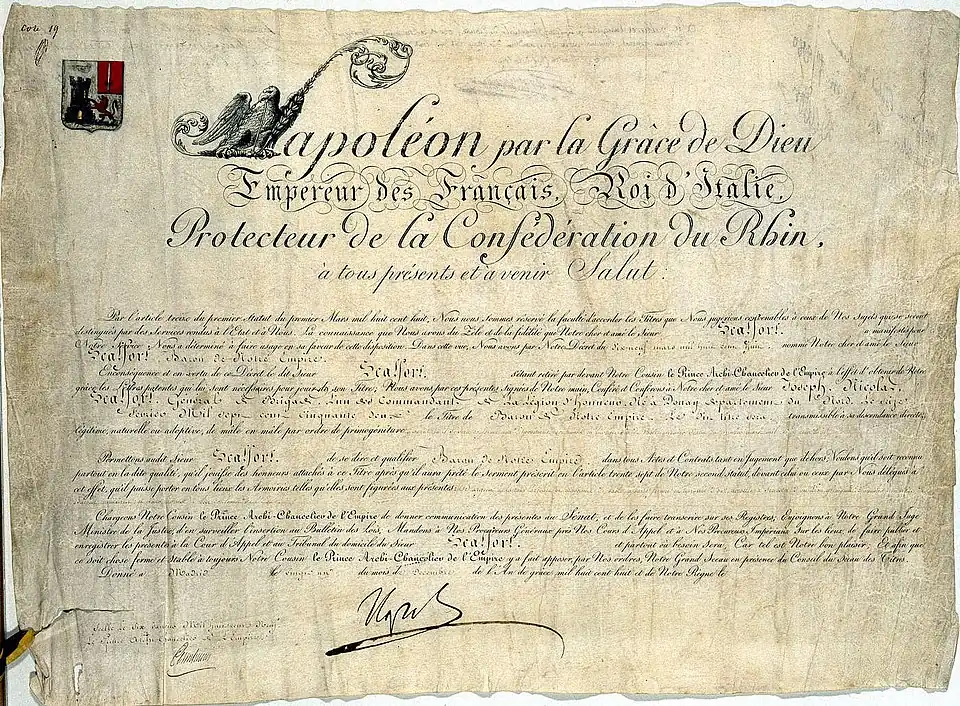 Cote 19
Napoléon par la Grâce de Dieu
Empereur des Français, Roi d'Italie,
Protecteur de la Confédération du Rhin,
à tous présents et à venir Salut :
Par l'article treize du premier Statut du premier Mars mil huit cent huit, Nous nous sommes réservé la faculté d'accorder les Titres que Nous jugerions convenables à ceux de Nos Sujets qui se seront
distingués par des Services rendus à l'État et à Nous. La connaissance que Nous avons du Zèle et de la fidélité que Notre cher et amé le Sieur Scalfort. a manifestés pour
Notre Service Nous a déterminé à faire usage en sa faveur de cette disposition. Dans cette vue, Nous avons par Notre Décret du dixneuf mars mil huit cent huit nommé Notre cher et amé le Sieur
Scalfort. Baron de Notre Empire.
En conséquence et en vertu de ce Décret le dit Sieur Scalfort. s'étant retiré par devant Notre Cousin le Prince Archi-Chancelier de l'Empire à l'effet d'obtenir de Notre
grâce les Lettres patentes qui lui sont nécessaires pour jouir de son Titre; Nous avons par ces présentes Signées de Notre main, Conféré et Conférons à Notre cher et amé le Sieur Joseph, Nicolas,
Scalfort, Général de Brigade, l'un des Commandants de La Légion d'honneur, Né à Douay département du Nord, Le
Mil sept cent cinquante deux le Titre de Baron de Notre Empire. Le dit titre sera transmissible à sa descendance directe,
légitime, naturelle ou adoptive, de mâle en mâle par ordre de primogéniture.
Permettons audit Sieur Scalfort. de se dire et qualifier Baron de Notre Empire dans tous Actes et Contrats tant en Jugement que dehors; Voulons qu'il soit reconnu
partout en la dite qualité, qu'il jouisse des honneurs attachés à ce Titre après qu'il aura prêté le Serment prescrit en l'article trente sept de Notre second statut, devant celui ou ceux par Nous délégués à
cet effet, qu'il puisse porter en tous lieux les Armoiries telles qu'elles sont figurées aux présentes
Chargeons Notre Cousin le Prince Archi-Chancelier de l'Empire de donner communication des présentes au Sénat, et de les faire transcrire sur ses Registres, Enjoignons à Notre Grand Juge
Ministre de la Justice, d'en surveiller l'insertion au Bulletin des Lois, Mandons à Nos Procureurs Généraux près Nos Cours d'Appel et à Nos Procureurs Impériaux Sur les lieux, de faire publier et
enregistrer les présentes à la Cour d'Appel et au Tribunal du domicile du Sieur Scalfort. et partout où besoin Sera: Car tel est Notre bon plaisir. Et afin que
ce soit chose ferme et Stable à toujours Notre Cousin le Prince Archi-Chancelier de l'Empire y a fait apposer, par Nos ordres, Notre Grand Sceau en présence du Conseil du Sceau des Titres.
Donné à Madrid le du mois de Décembre de l'An de grâce, mil huit cent huit et de Notre Règne le
Scellé le Six Janvier Mil huit cent Neuf
le Prince Archi-Chancelier de l'Empire